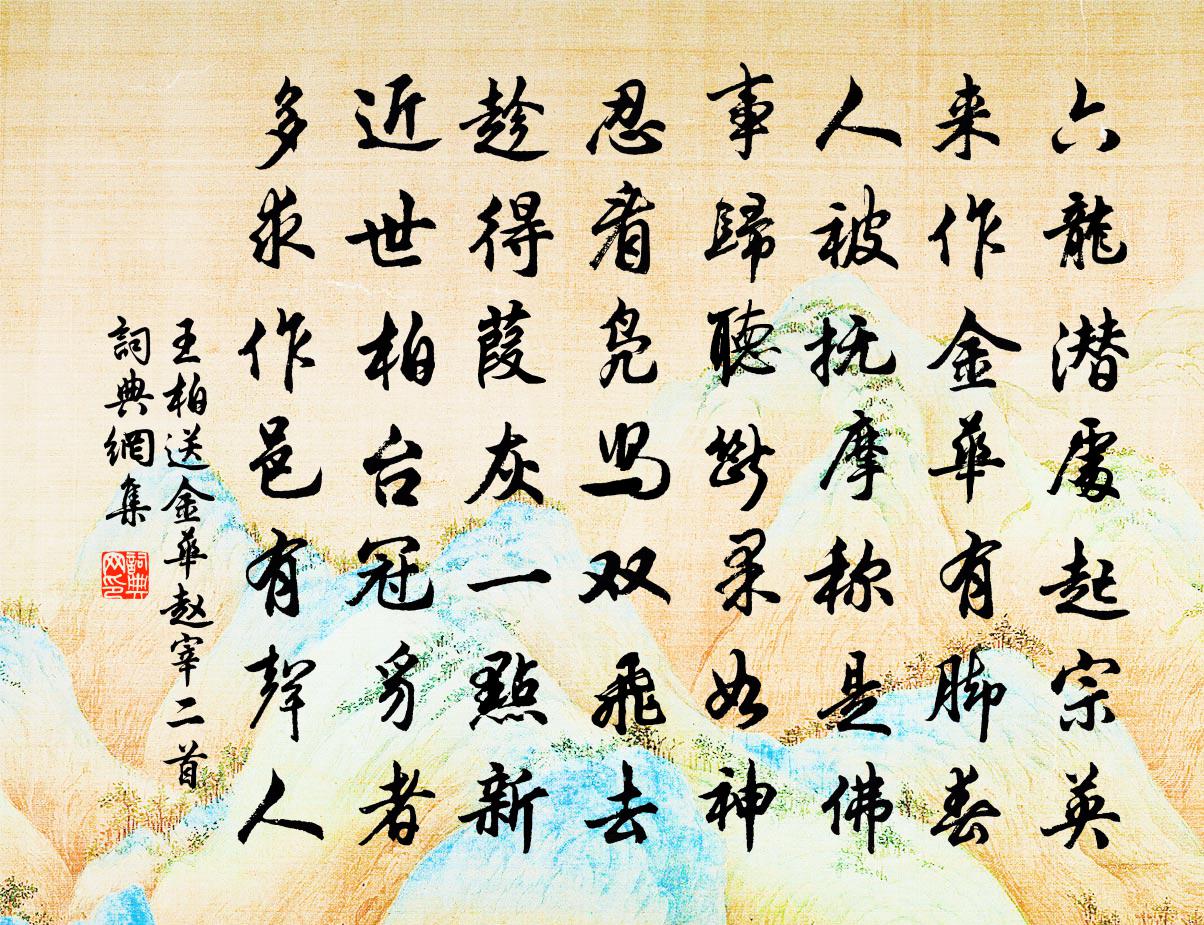 六龍潜處起宗英
来作金華有脚春
人被抚摩称是佛
事歸聽斷果如神
忍看凫舄双飛去
趁得葭灰一點新
近世柏台冠豸者
多求作邑有聲人
王柏送金華赵宰二首
詞典網集
詞典网印